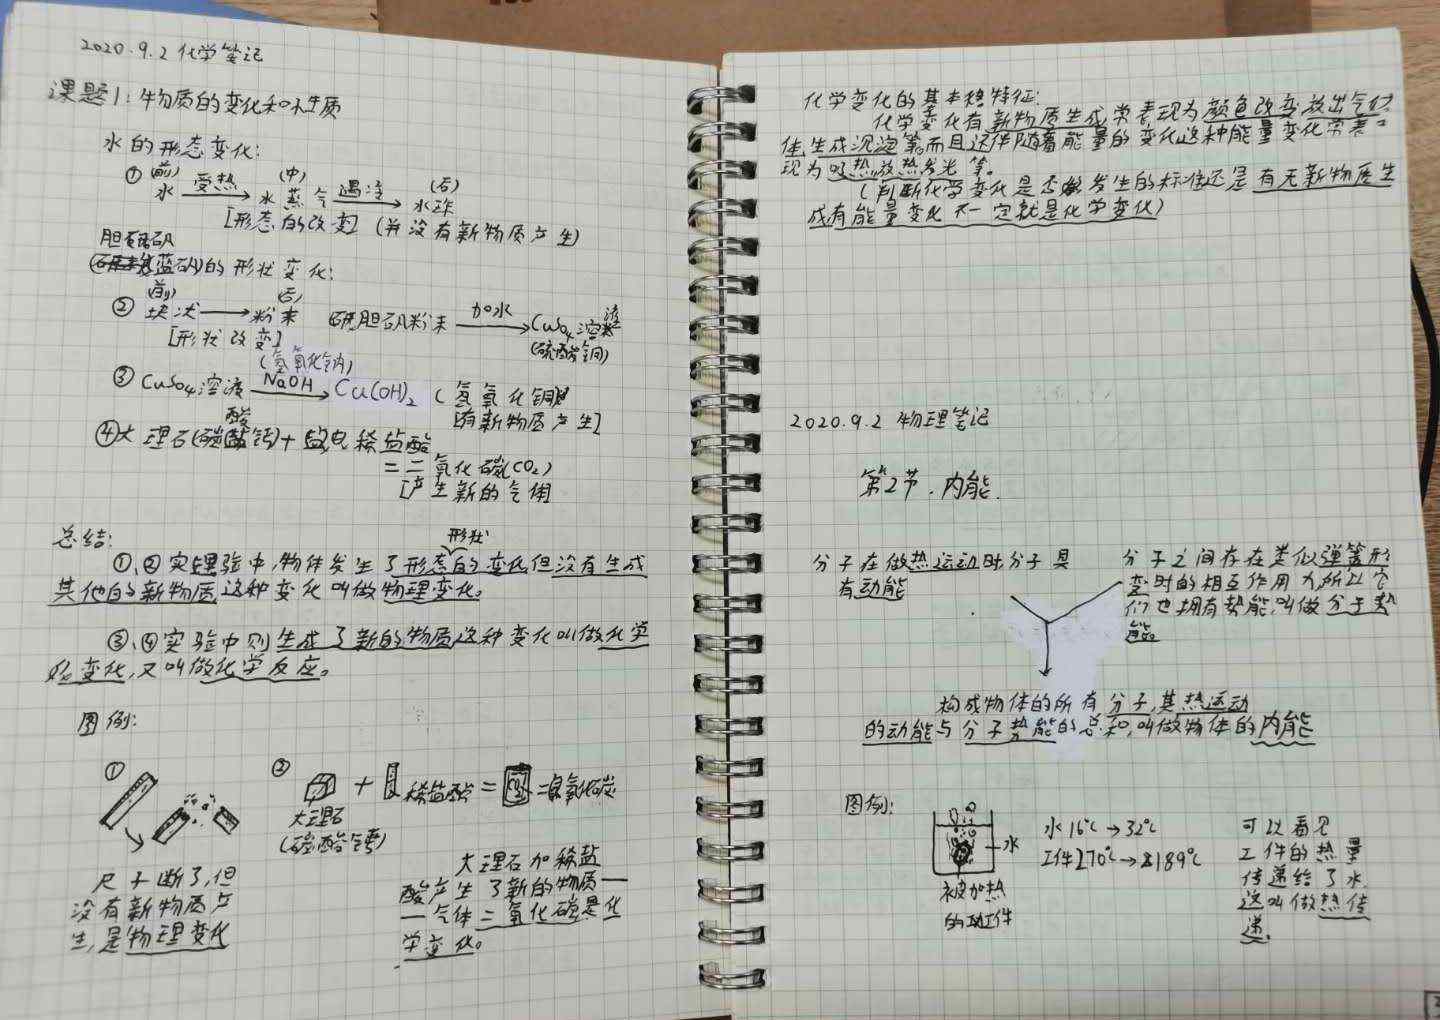 2020.9.2 化学笔记
课题1:物质的变化和性质
水的形态变化:
(前) (中) (后)
① 水 受热 水蒸气 遇冷 水珠
[形态的改变] (并没有新物质产生)
胆矾
(蓝矾)的形状变化:
(前) (后)
② 块状 → 粉末 胆矾粉末 加水 CuSO4 溶液
[形状改变] (硫酸铜)
(氢氧化钠)
③ CuSO4溶液 NaOH Cu(OH)2 (氢氧化铜)
[有新物质产生]
④大理石(碳酸钙)+ 稀盐酸
=二氧化碳(CO2)
[产生新的气体]
总结:
形状
①、②实验中,物体发生了形态的变化但没有生成
其他的新物质,这种变化叫做物理变化。
③、④实验中则生成了新的物质,这种变化叫做化学
变化,又叫做化学反应。
图例:
① ② + 稀盐酸 = CO2 =二氧化碳
大理石
(碳酸钙)
尺子断了,但
没有新物质产
生,是物理变化
大理石加稀盐
酸产生了新的物质一
一气体二氧化碳是化
学变化。
化学变化的基本特征:
化学变化有新物质生成常表现为颜色改变,放出气
体,生成沉淀等。而且还伴随着能量的变化这种能量变化常表
现为吸热放热发光等。
(判断化学变化是否发生的标准还是有无新物质生
成有能量变化不一定就是化学变化)
2020.9.2 物理笔记
第2节.内能.
分子在做热运动时,分子具
有动能
分子之间存在类似弹簧形
变时的相互作用力,所以它
们也拥有势能,叫做分子势
能。
构成物体的所有分子,其热运动
的动能与分子势能的总和,叫做物体的内能
图例:
水
被加热
的工件
水16℃→32℃
工件270℃→189℃
可以看见
工件的热量
传递给了水
这叫做热传
递。